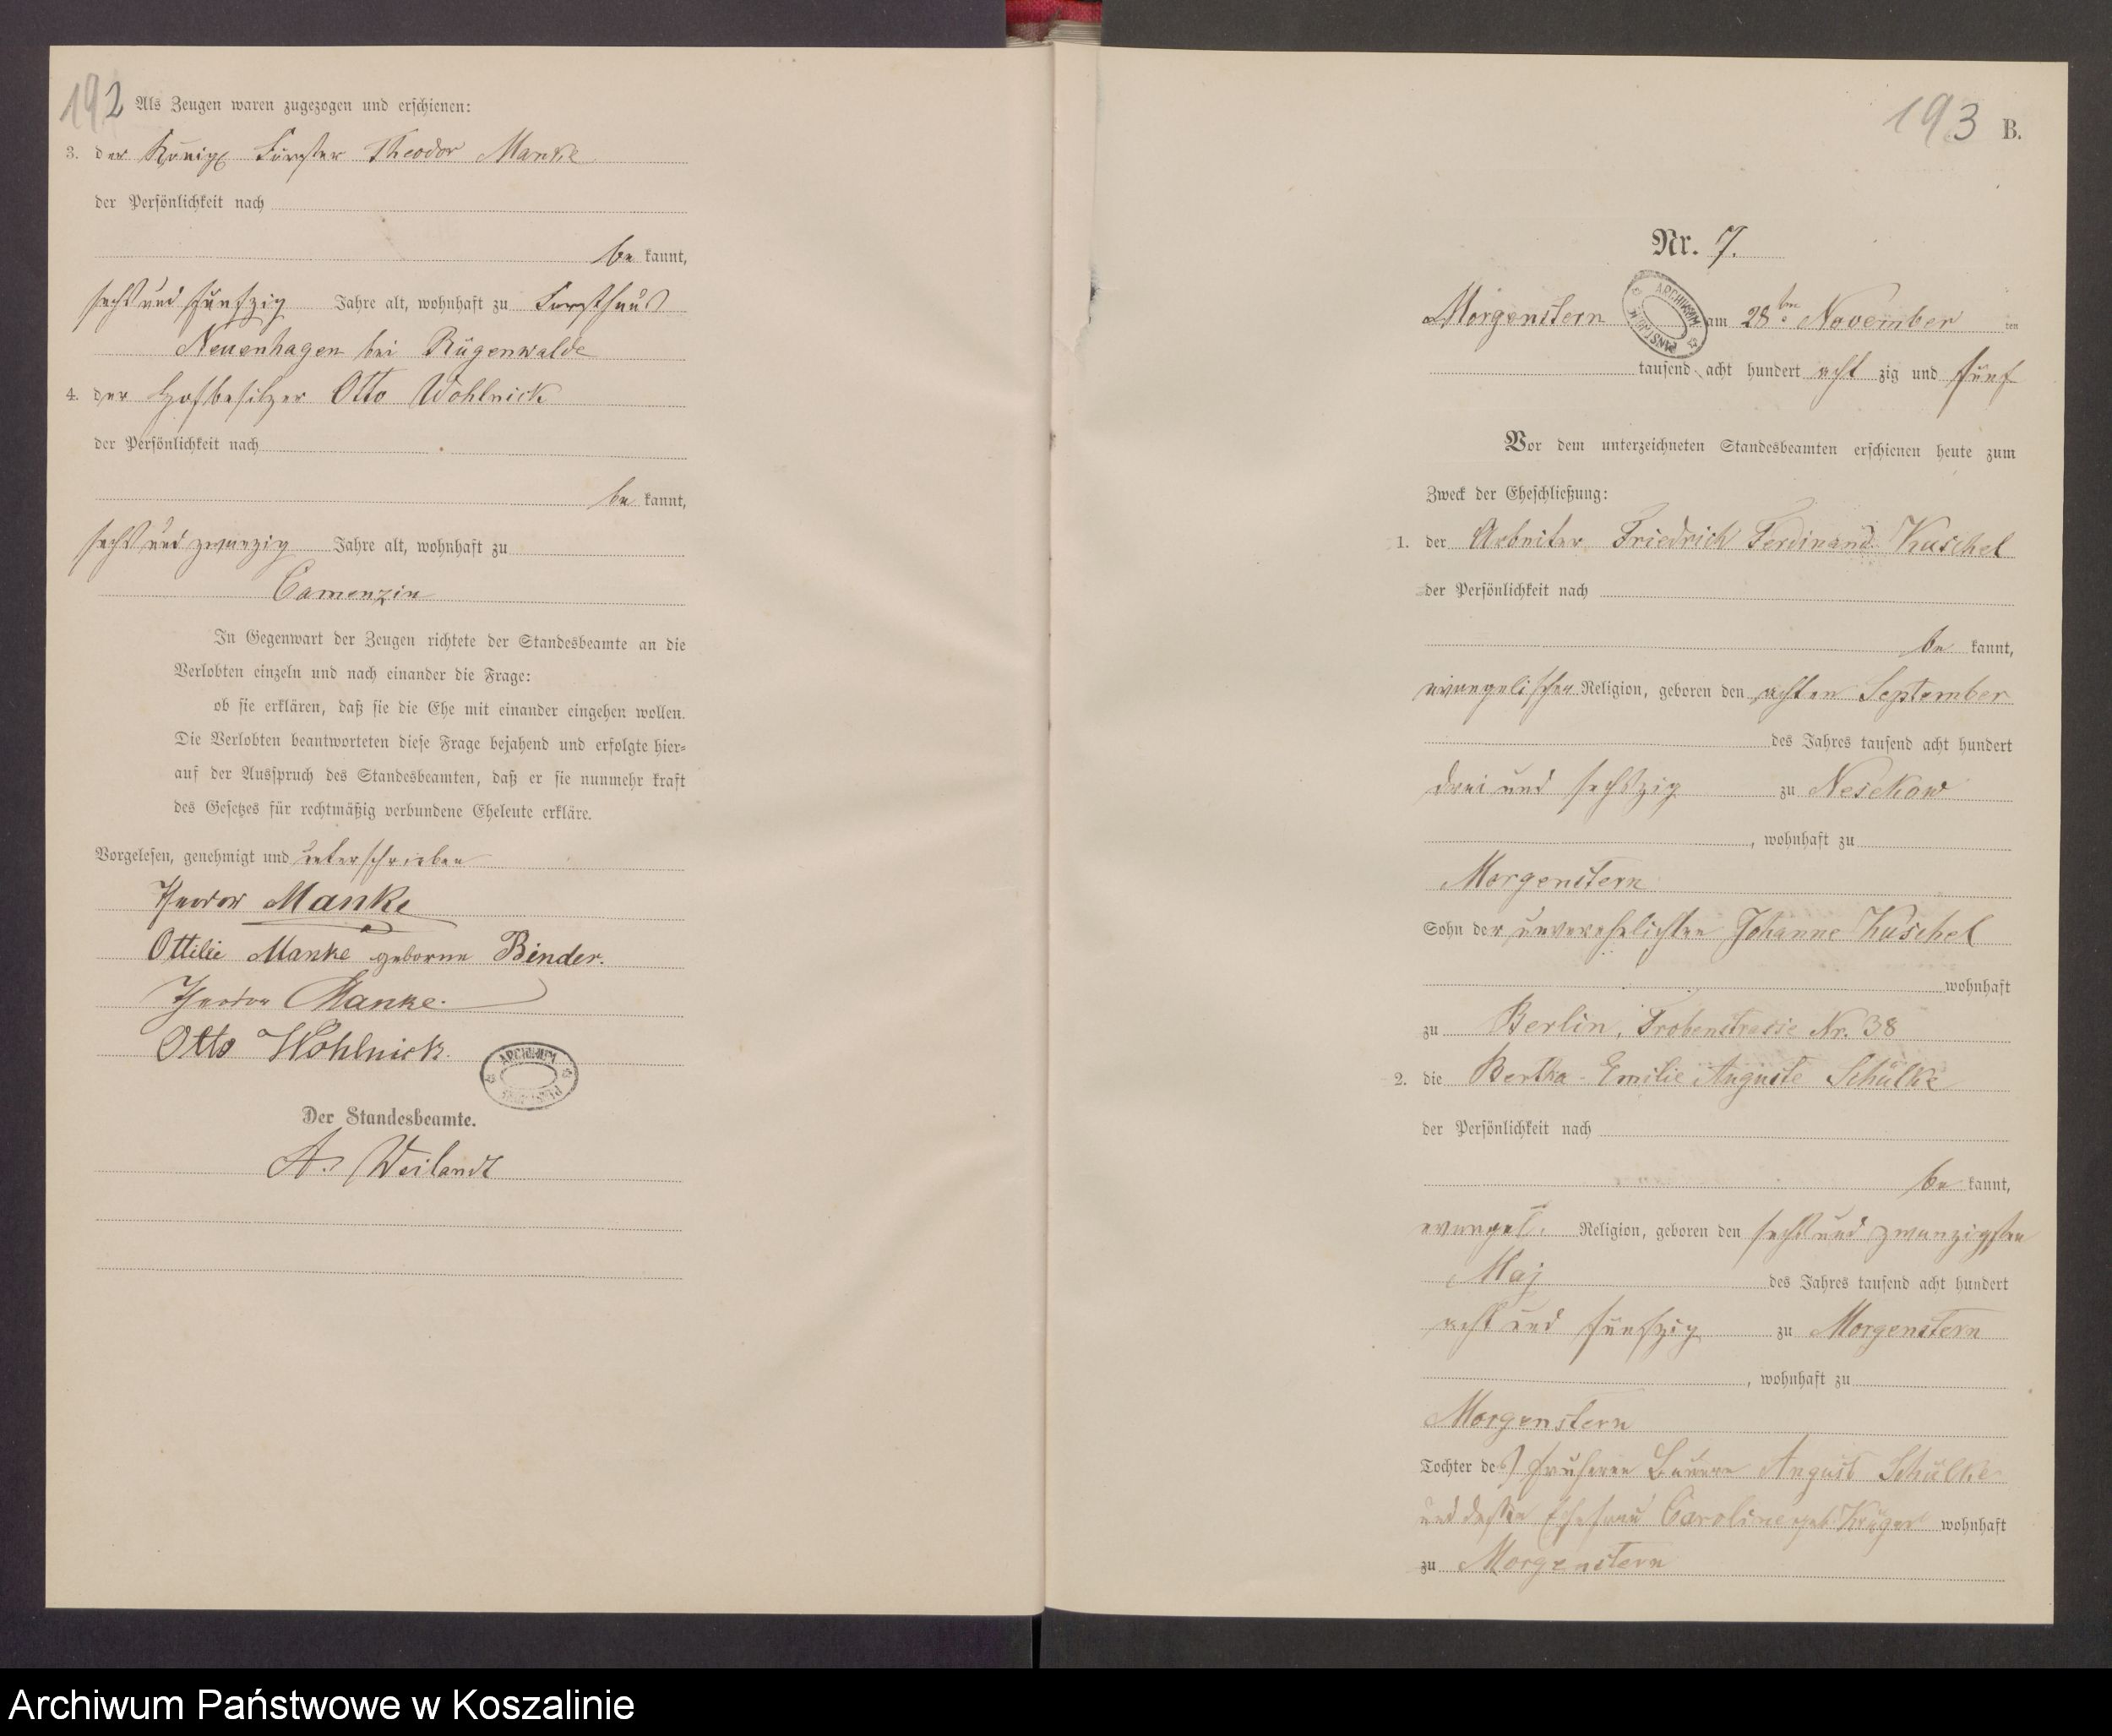 192
Als Zeugen waren zugezogen und erschienen:
3. der Königl Förster Theodor Manke
der Persönlichkeit nach
be kannt,
sechs und fünfzig Jahre alt, wohnhaft zu Forsthaus
Neuenhagen bei Rügenwalde
4. der Hofbesitzer Otto Wohlnick
der Persönlichkeit nach
be kannt,
sechs und zwanzig Jahre alt, wohnhaft zu
Camenzin
In Gegenwart der Zeugen richtete der Standesbeamte an die
Verlobten einzeln und nach einander die Frage:
ob sie erklären, daß sie die Ehe mit einander eingehen wollen.
Die Verlobten beantworteten diese Frage bejahend und erfolgte hier=
auf der Ausspruch des Standesbeamten, daß er sie nunmehr kraft
des Gesetzes für rechtmäßig verbundene Eheleute erkläre.
Vorgelesen, genehmigt und unterschrieben
Theodor Manke
Ottilie Manke geborne Binder.
Theodor Manke.
Otto Wohlnick.
ARCHIWUM
Der Standesbeamte.
A. Weilandt
193
B.
Nr. 7.
Morgenstern am 28ten November ten
ARCHIWUM PAŃSTW. W
tausend acht hundert acht zig und fünf
Vor dem unterzeichneten Standesbeamten erschienen heute zum
Zweck der Eheschließung:
1. der Arbeiter Friedrich Ferdinand Kuschel
der Persönlichkeit nach
be kannt,
evangelischer Religion, geboren den achten September
des Jahres tausend acht hundert
drei und sechszig zu Nesekow
, wohnhaft zu
Morgenstern
Sohn der unverehelichten Johanne Kuschel
wohnhaft
zu Berlin, Frobenstrasse Nr. 38
2. die Bertha Emilie Auguste Schülke
der Persönlichkeit nach
be kannt,
evangel. Religion, geboren den sechs und zwanzigsten
Maj des Jahres tausend acht hundert
acht und fünfzig zu Morgenstern
, wohnhaft zu
Morgenstern
Tochter des früheren Bauern August Schülke
und dessen Ehefrau Caroline geb. Krüger wohnhaft
zu Morgenstern
Archiwum Państwowe w Koszalinie